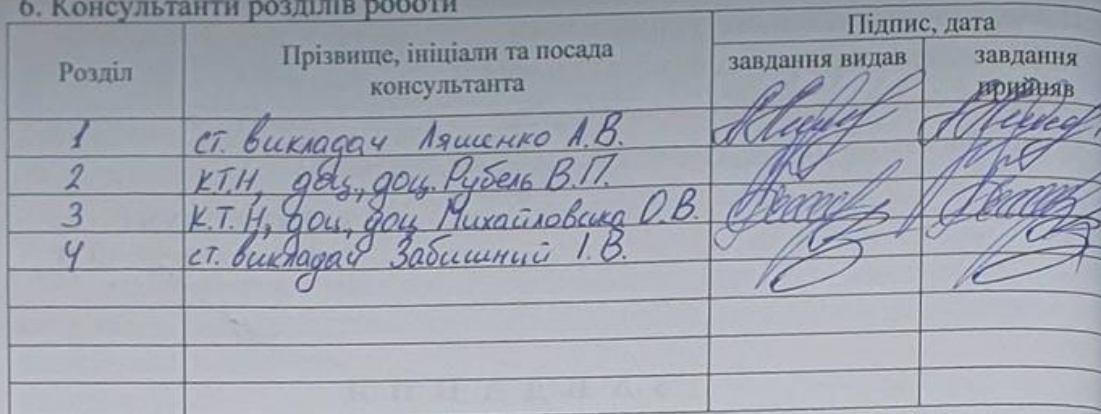 6. Консультанти розділів роботи
Розділ
Прізвище, ініціали та посада
консультанта
Підпис, дата
завдання видав
завдання
прийняв
1 ст. викладач Ляшенко А.В.
2 к.т.н, доц., доц. Рубель В.П.
3 к.т.н, доц., доц Михайловська О.В.
4 ст. викладач І.В.